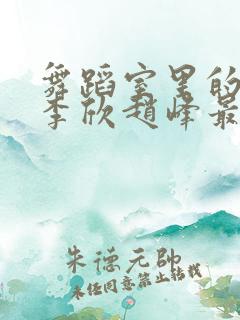 舞蹈室里的
李欣赵峰最
朱德元帅
未经同意禁止转载